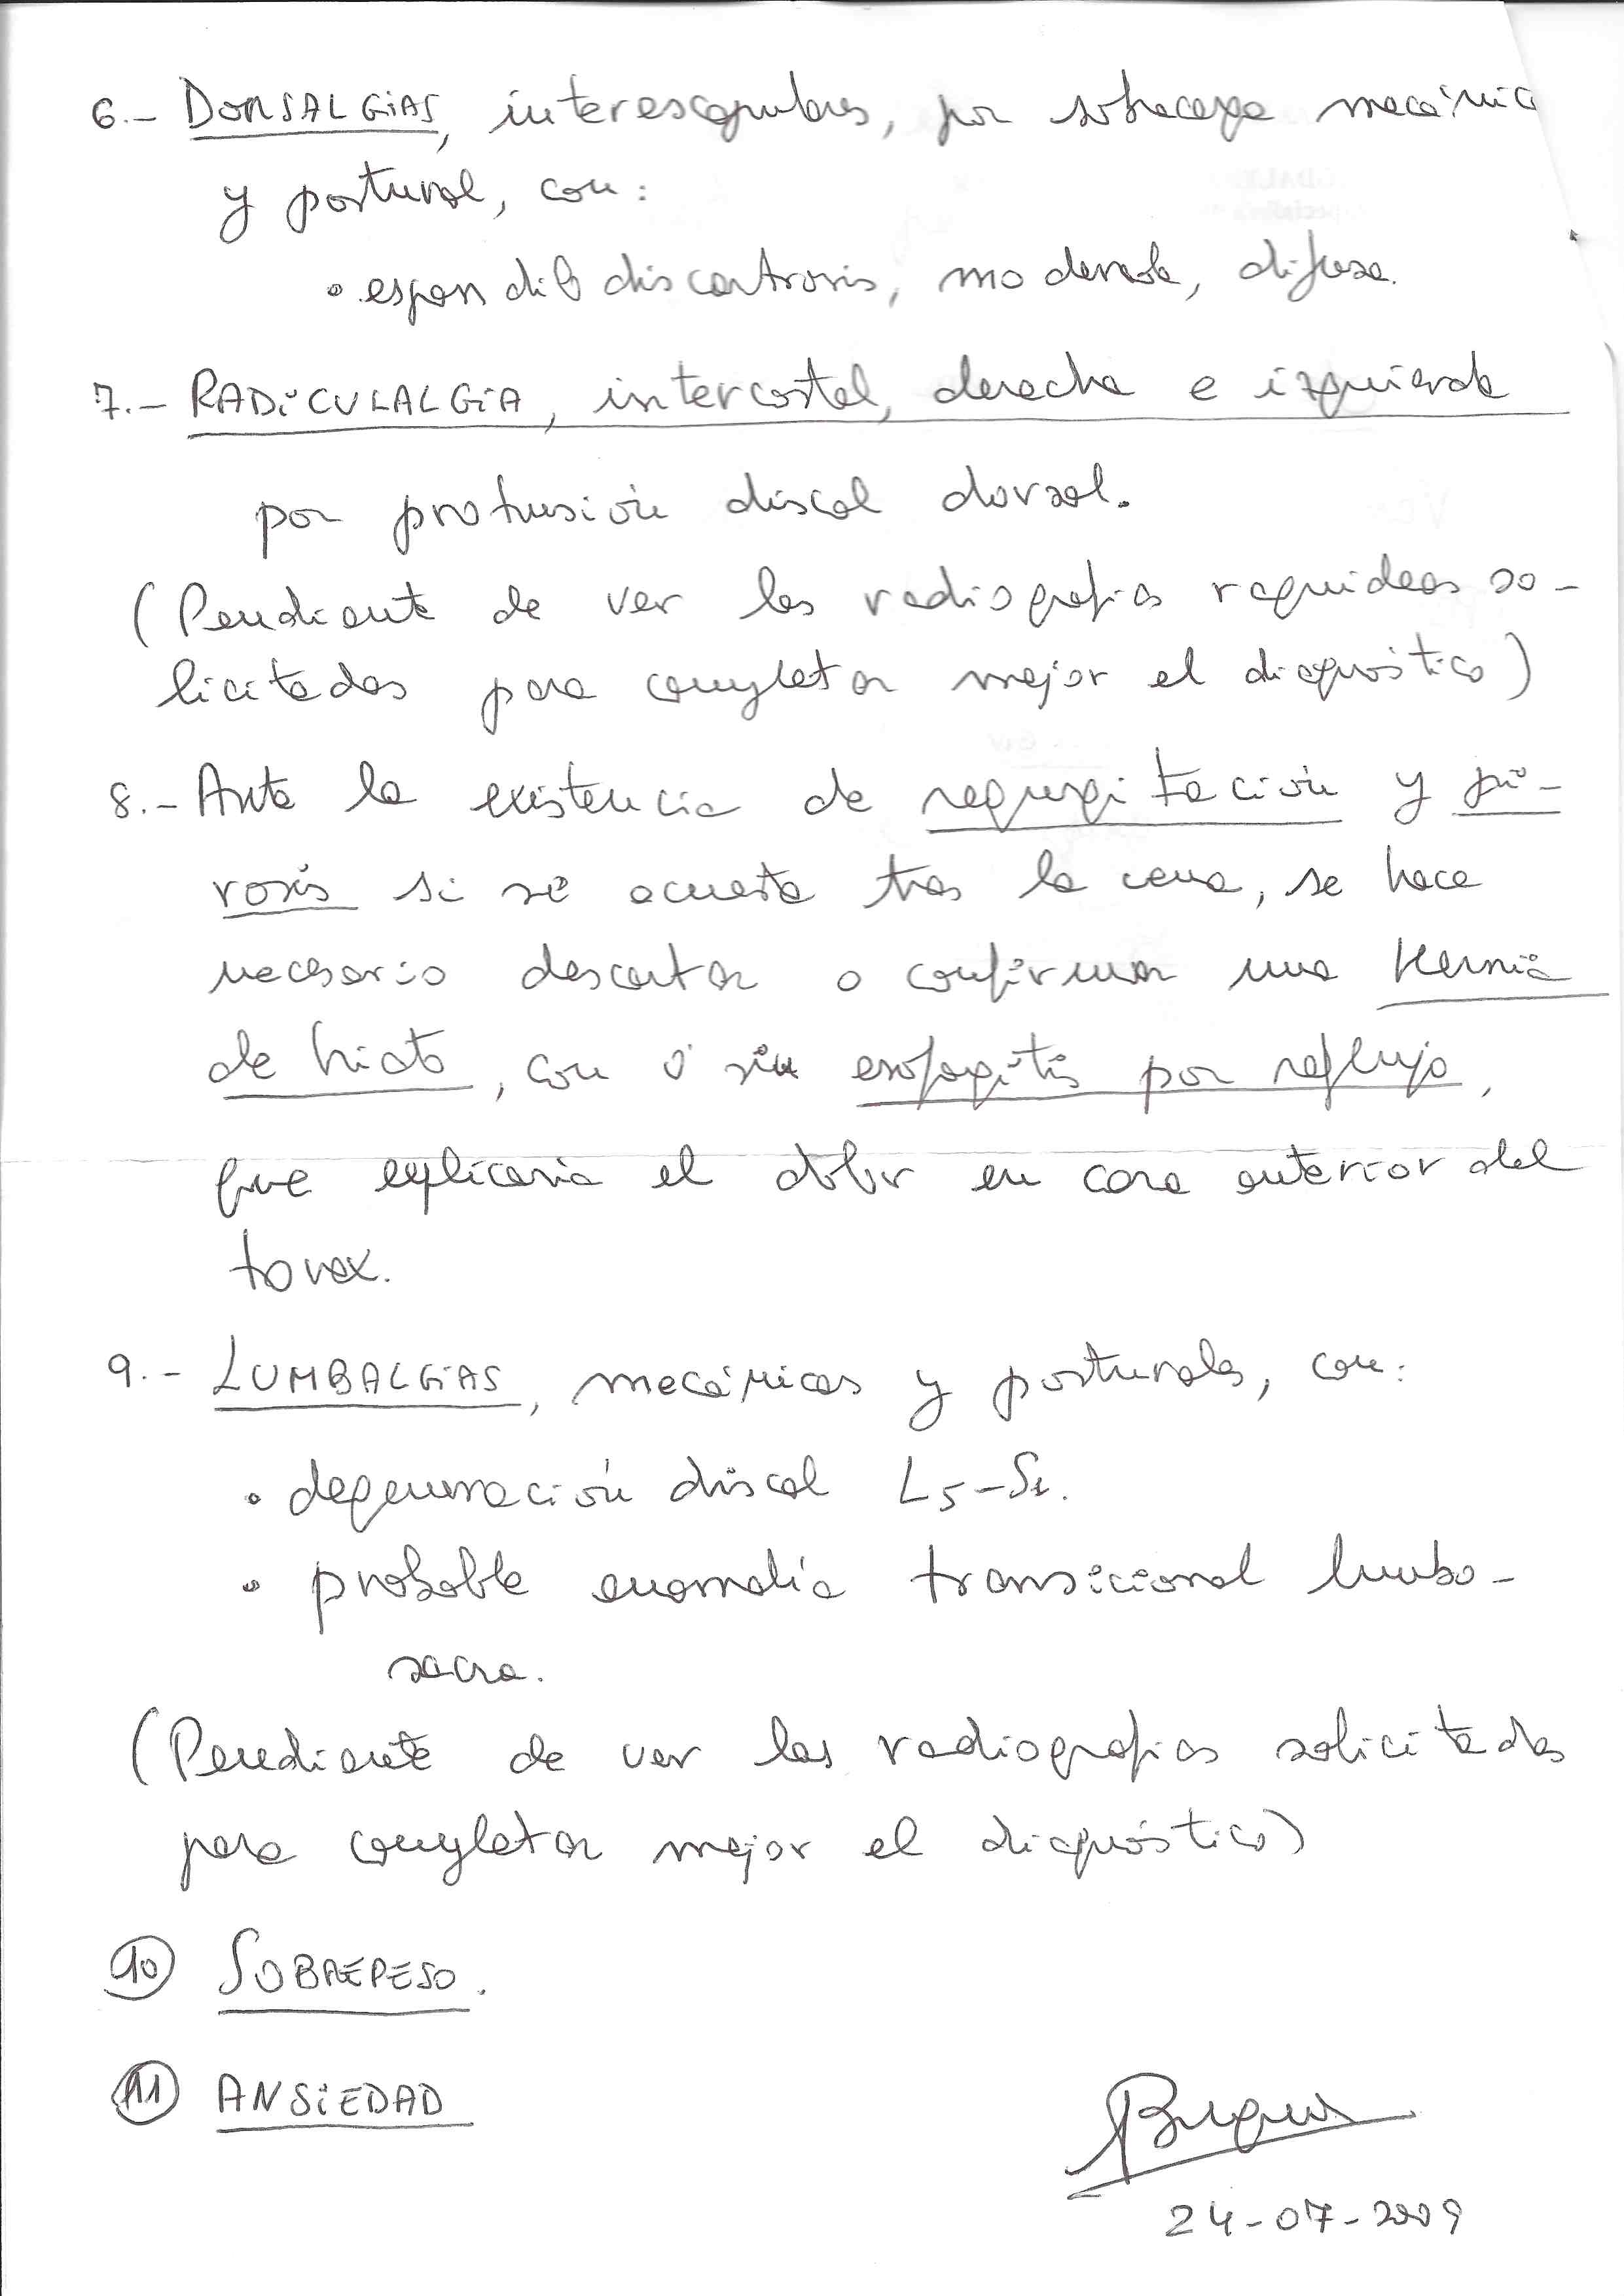 6.- DORSALGIAS, interescapulares, por sobrecarga mecánica
y postural, con:
• espondilodiscartrosis, moderada, difusa.
7.- RADICULALGIA, intercostal, derecha e izquierda
por protusión discal dorsal.
(Pendiente de ver las radiografias raquideas so-
licitadas para completar mejor el diagnóstico)
8.- Ante la existencia de regurgitación y pi-
rosis si se acuesta tras la cena, se hace
necesario descartar o confirmar una Hernia
de hiato, con ó sin esofagitis por reflujo,
que explicaria el dolor en cara anterior del
torax.
9.- LUMBALGIAS, mecánicas y posturales, con:
• degeneración discal L5-S1.
• probable anomalía transicional lumbo-
sacra.
(Pendiente de ver las radiografias solicitadas
para completar mejor el diagnóstico)
10 SOBREPESO.
11 ANSIEDAD
24-07-2009